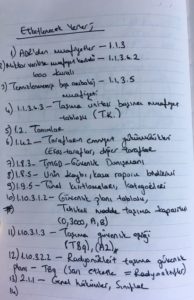 Etiketlenecek Yerler;
1) ADR'den muafiyetler - 1.1.3
2) Miktar muafiyet 1.1.3.6.2
1000 kuralı
3) Temizlenmemiş boş ambalaj - 1.1.3.5
muafiyeti
4) 1.1.3.6.3 - Taşıma ünitesi başına muafiyet
tablosu (T.K.)
5) 1.2. Tanımlar
6) 1.4.2 - Tarafların emniyet yükümlülükleri
(Esas taraflar, diğer taraflar)
7) 1.8.3 - TMGD - Güvenlik Danışmanı
8) 1.8.5 - Olay kaza rapor bildirimi
9) 1.9.5 - Tünel kısıtlamaları, kategorileri
10) 1.10.3.1.2 - Güvenlik planı tablosu,
Tehlikeli madde taşıma
(0, 3000, A, B)
11) 1.10.3.1.3 - Taşıma güvenlik eşiği
(TBq), (A2)
12) 1.10.3.2.2 - Radyonüklit taşıma güvenlik
Planı - TBq
13) 2.1.1 - Genel hükümler, Sınıflar
14)